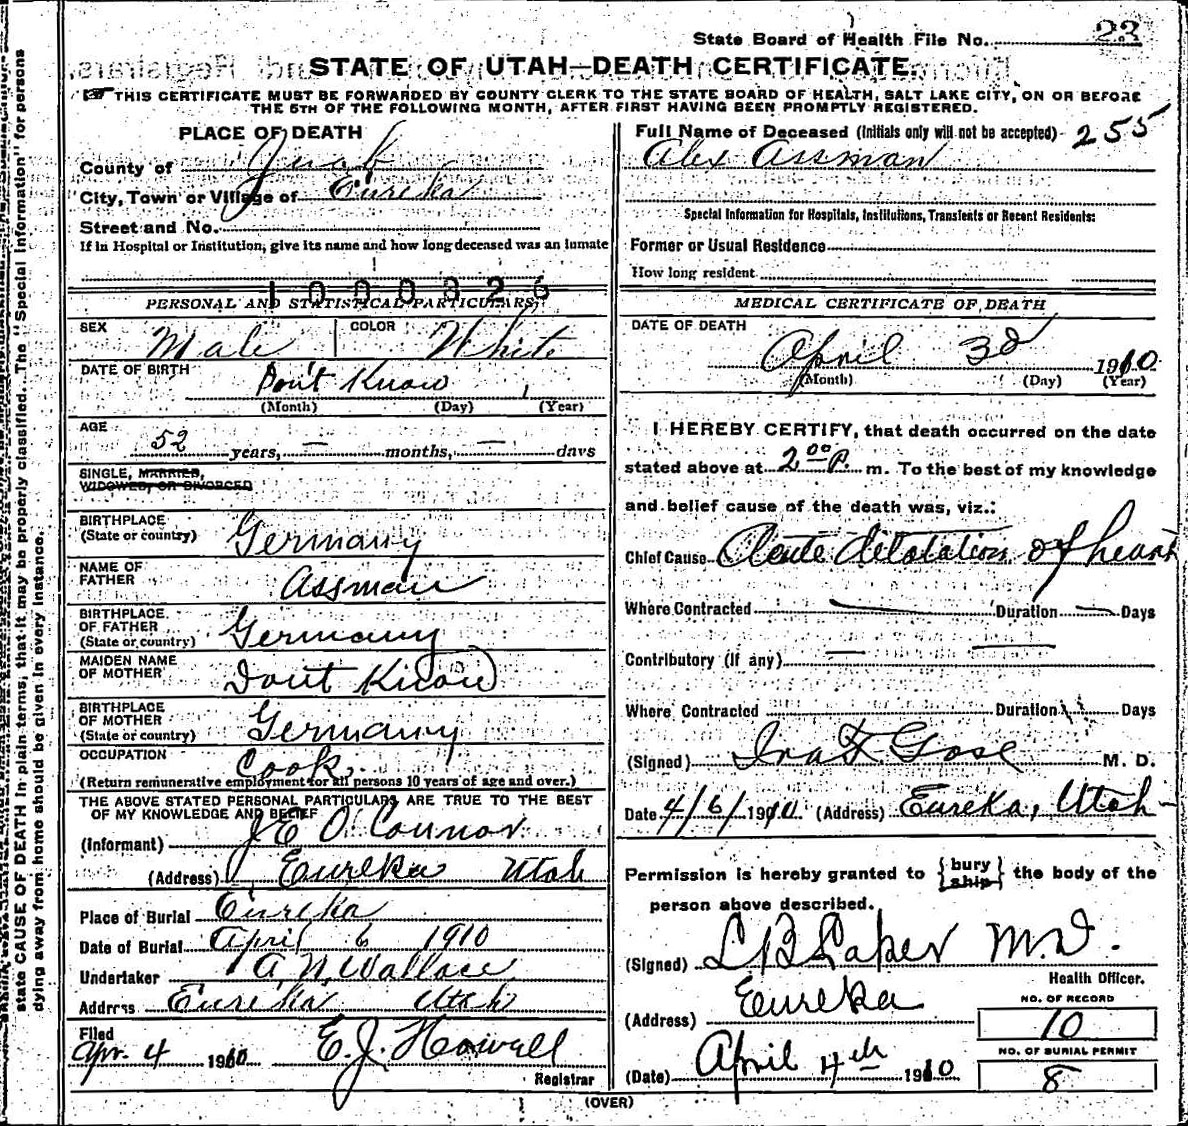 State Board of Health File No. 23
STATE OF UTAH—DEATH CERTIFICATE.
THIS CERTIFICATE MUST BE FORWARDED BY COUNTY CLERK TO THE STATE BOARD OF HEALTH, SALT LAKE CITY, ON OR BEFORE
THE 5TH OF THE FOLLOWING MONTH, AFTER FIRST HAVING BEEN PROMPTLY REGISTERED.
PLACE OF DEATH
County of Juab
City, Town or Village of Eureka
Street and No.
If in Hospital or Institution, give its name and how long deceased was an inmate
1000326
PERSONAL AND STATISTICAL PARTICULARS
SEX Male COLOR White
DATE OF BIRTH Don't Know
(Month) (Day) (Year)
AGE
52 years, — months, — days
SINGLE, MARRIED,
WIDOWED, OR DIVORCED
BIRTHPLACE
(State or country) Germany
NAME OF
FATHER Assman
BIRTHPLACE
OF FATHER
(State or country) Germany
MAIDEN NAME
OF MOTHER Dont Know
BIRTHPLACE
OF MOTHER
(State or country) Germany
OCCUPATION Cook
(Return remunerative employment for all persons 10 years of age and over.)
THE ABOVE STATED PERSONAL PARTICULARS ARE TRUE TO THE BEST
OF MY KNOWLEDGE AND BELIEF
(Informant) J E O'Connor
(Address) Eureka Utah
Place of Burial Eureka
Date of Burial April 6 1910
Undertaker A N Wallace
Address Eureka Utah
Filed
Apr. 4 1910 E. J. Howell
Registrar
Full Name of Deceased (Initials only will not be accepted) - 255
Alex Assman
Special Information for Hospitals, Institutions, Transients or Recent Residents:
Former or Usual Residence
How long resident
MEDICAL CERTIFICATE OF DEATH
DATE OF DEATH
April 3d 1910
(Month) (Day) (Year)
I HEREBY CERTIFY, that death occurred on the date
stated above at 2 00 P. m. To the best of my knowledge
and belief cause of the death was, viz.:
Chief Cause Acute dilatation of heart
Where Contracted — Duration — Days
Contributory (if any) — —
Where Contracted Duration Days
(Signed) Ina F Gose M. D.
Date 4/6/1910 (Address) Eureka, Utah -
Permission is hereby granted to { bury ship } the body of the
person above described.
(Signed) L B Laker M.D.
Health Officer.
(Address) Eureka
NO. OF RECORD
10
NO. OF BURIAL PERMIT
8
(Date) April 4th 1910
(OVER)
state CAUSE OF DEATH in plain terms, that it may be properly classified. The "Special Information" for persons
dying away from home should be given in every instance.